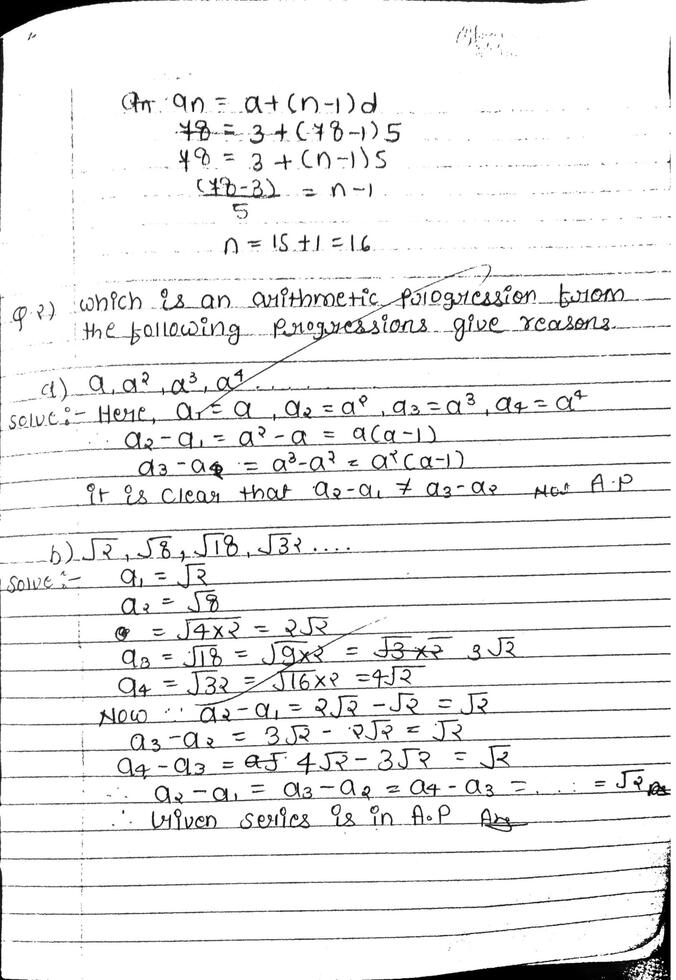 an = a+(n-1)d
78 = 3+(78-1)5
78 = 3+(n-1)5
(78-3)/5 = n-1
n = 15+1 = 16
Q2) which is an arithmetic progression from
the following progressions give reasons.
a) a, a², a³, a⁴.....
Solve:- Here, a₁ = a, a₂ = a², a₃ = a³, a₄ = a⁴
∴ a₂-a₁ = a²-a = a(a-1)
a₃-a₂ = a³-a² = a²(a-1)
it is clear that a₂-a₁ ≠ a₃-a₂ Not A.P
b) √2, √8, √18, √32....
Solve:- a₁ = √2
a₂ = √8
= √4×2 = 2√2
a₃ = √18 = √9×2 = √3×2 3√2
a₄ = √32 = √16×2 = 4√2
Now ∵ a₂-a₁ = 2√2 - √2 = √2
a₃-a₂ = 3√2 - 2√2 = √2
a₄-a₃ = 4√2 - 3√2 = √2
∴ a₂-a₁ = a₃-a₂ = a₄-a₃ = ..... = √2
∴ Given series is in A.P Ans